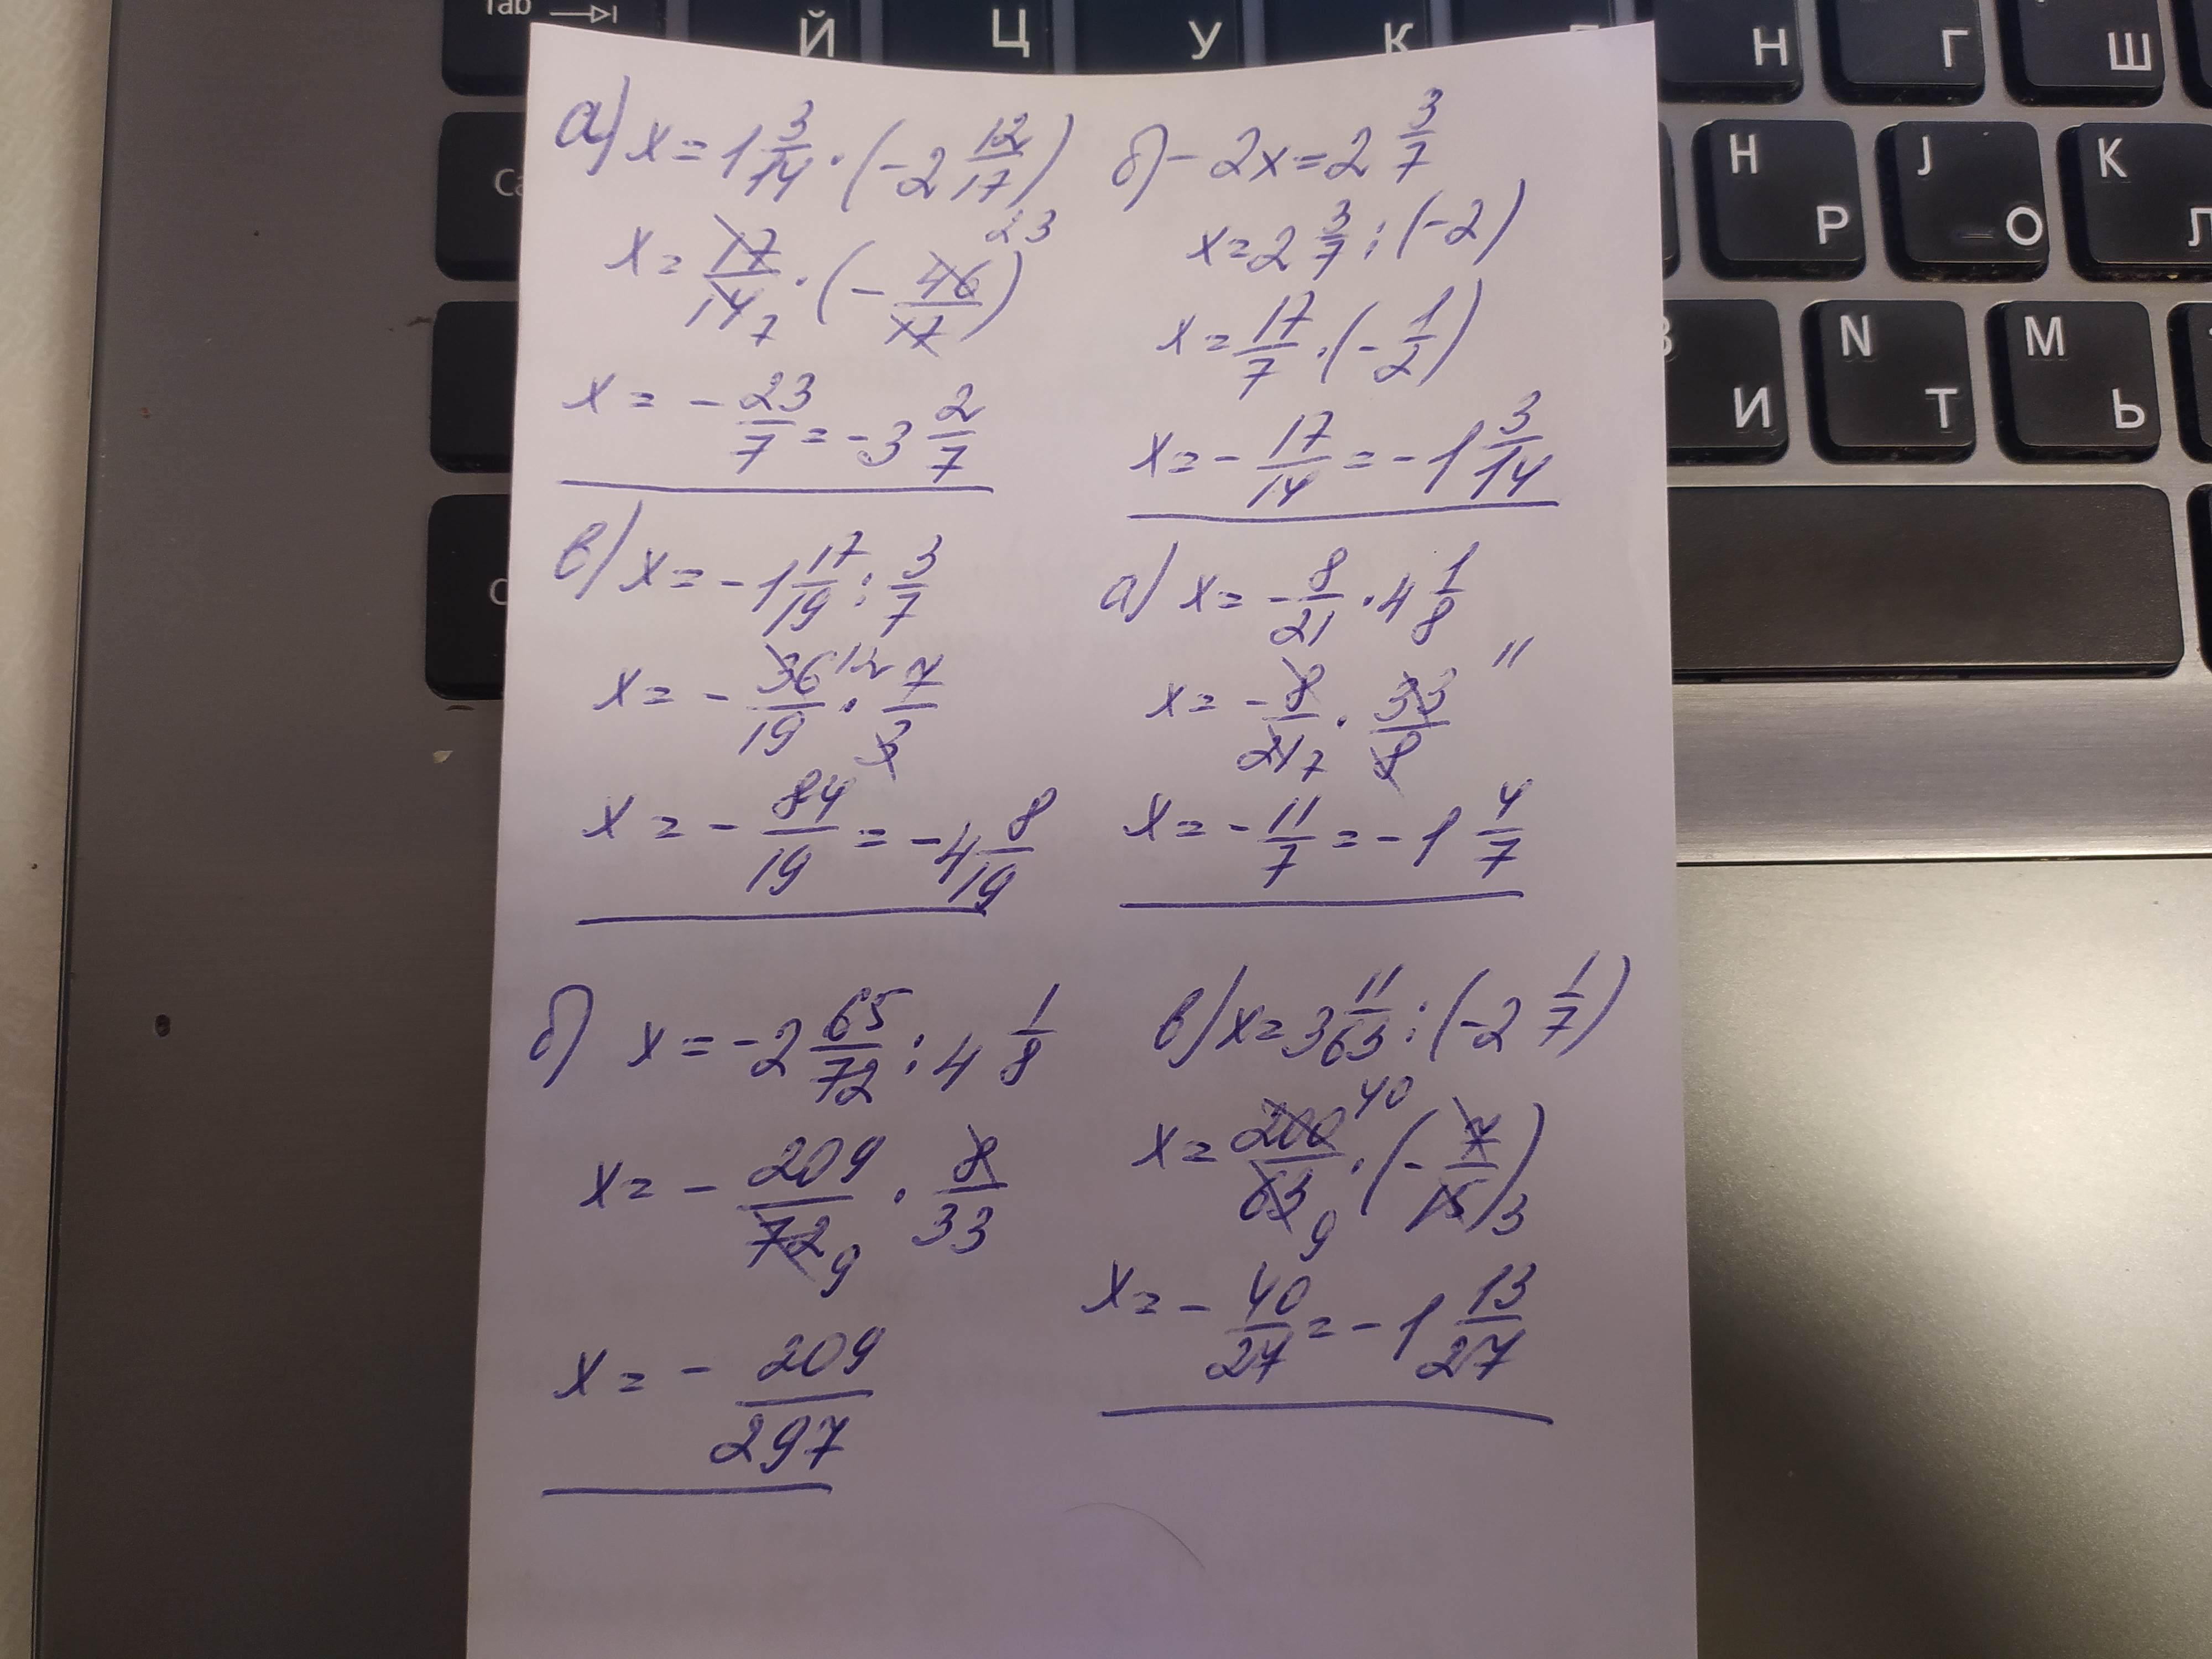 Tab
Й Ц У К Н Г Ш
а) x = 1 3/14 · (-2 12/17)
x = 17/14 7 · (- 46/17) 23
x = - 23/7 = -3 2/7
б) - 2x = 2 3/7
x = 2 3/7 : (-2)
x = 17/7 · (- 1/2)
x = - 17/14 = -1 3/14
в) x = -1 17/19 : 3/7
x = - 36/19 12 · 7/3
x = - 84/19 = -4 8/19
а) x = - 8/21 · 4 1/8
x = - 8/21 7 · 33/8 11
x = - 11/7 = -1 4/7
б) x = -2 65/72 : 4 1/8
x = - 209/72 9 · 8/33
x = - 209/297
в) x = 3 11/63 : (-2 1/7)
x = 200/63 40 9 · (- 7/15) 3
x = - 40/27 = -1 13/27
Ca
H Р J О K Л
И N Т M Ь